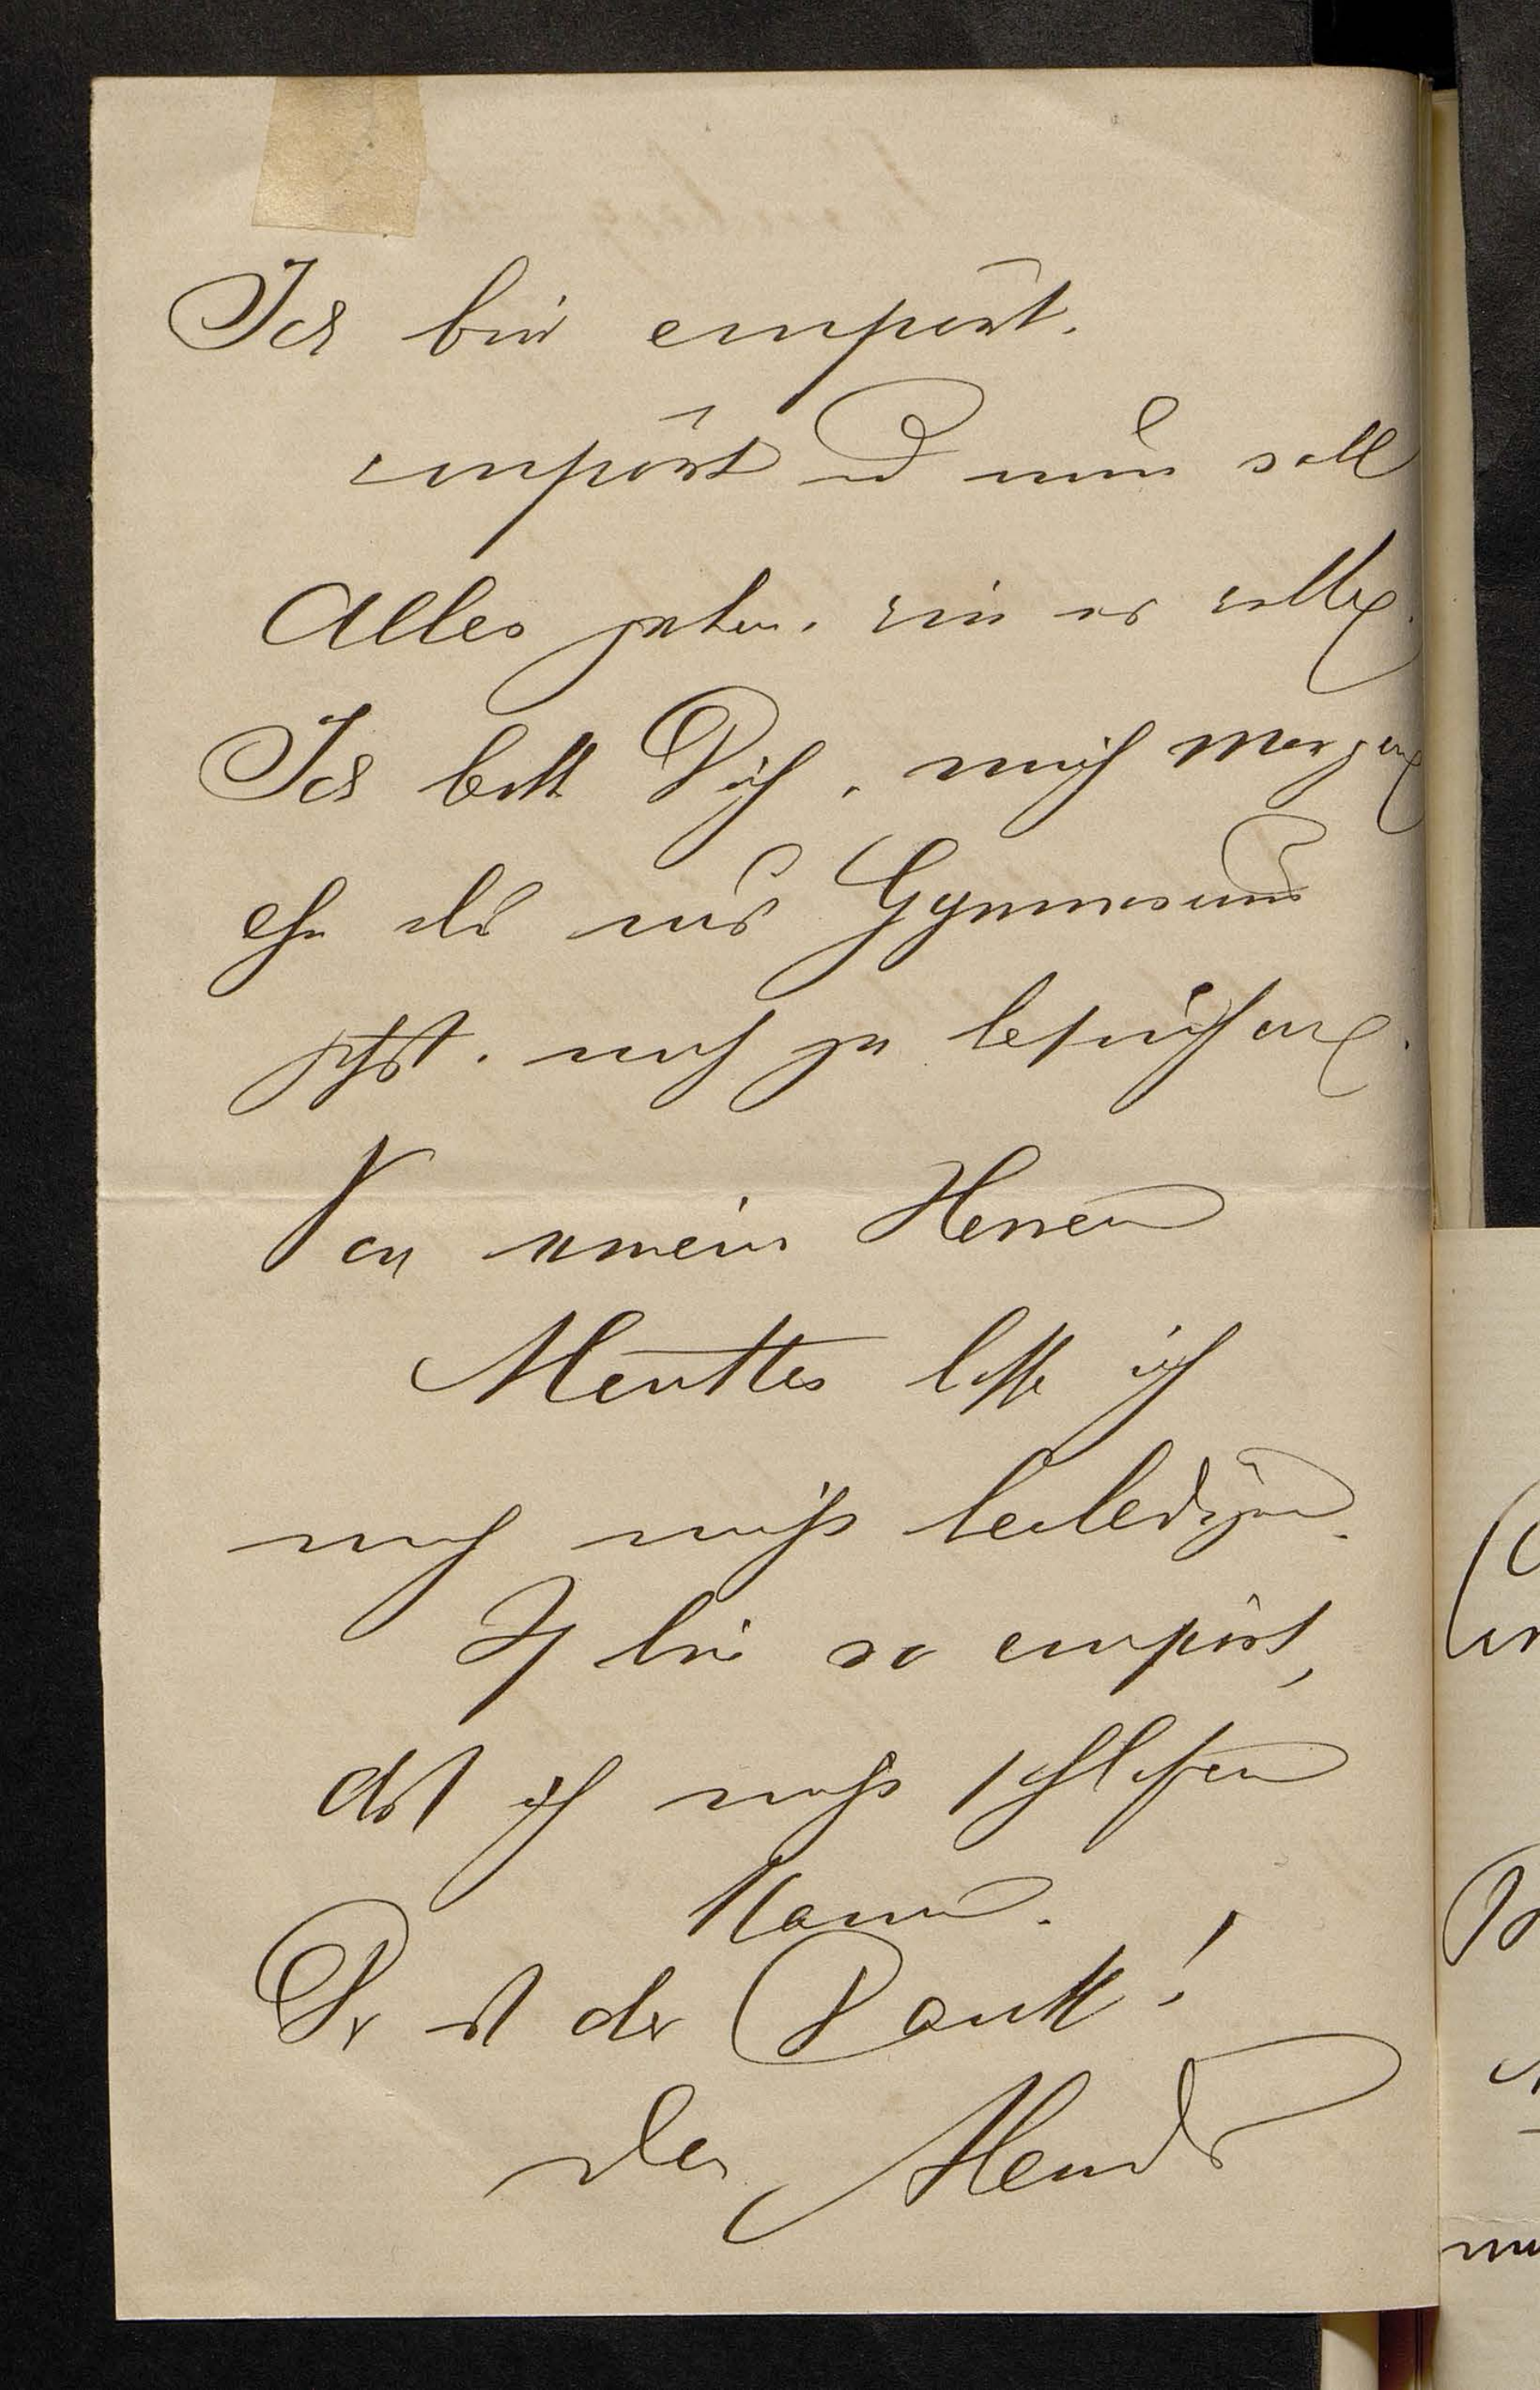 Ich bin empört.
empört u nun soll
Alles gehen, wie es wolle.
Ich bitte Dich, mich morgen
ehe du ins Gymnasium
gehst, noch zu besuchen.
Von meinen Herren
lasse ich
mich nicht beleidigen.
Ich bin so empört,
daß ich nicht schlafen
kann.
Dr ist der Dank!